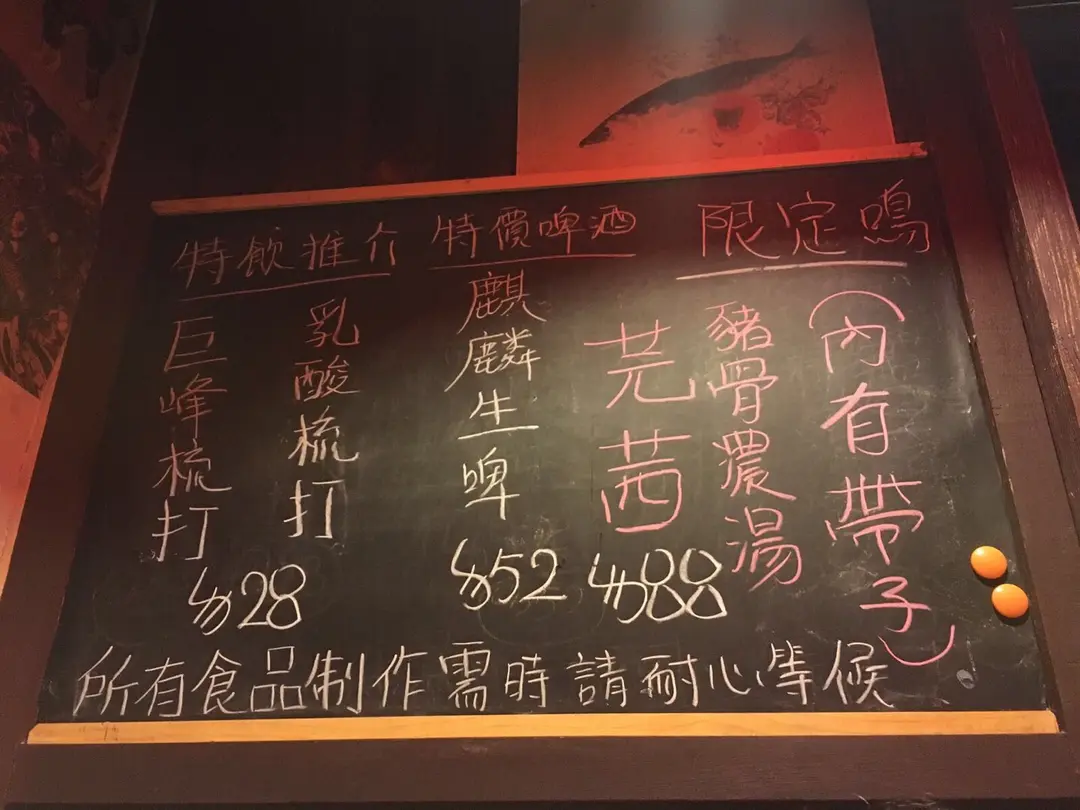 特飲推介
巨峰梳打
乳酸梳打
$28
特價啤酒
麒麟生啤
$52
限定鳴
芫茜
豬骨濃湯
(內有帶子)
$88
所有食品制作需時請耐心等候